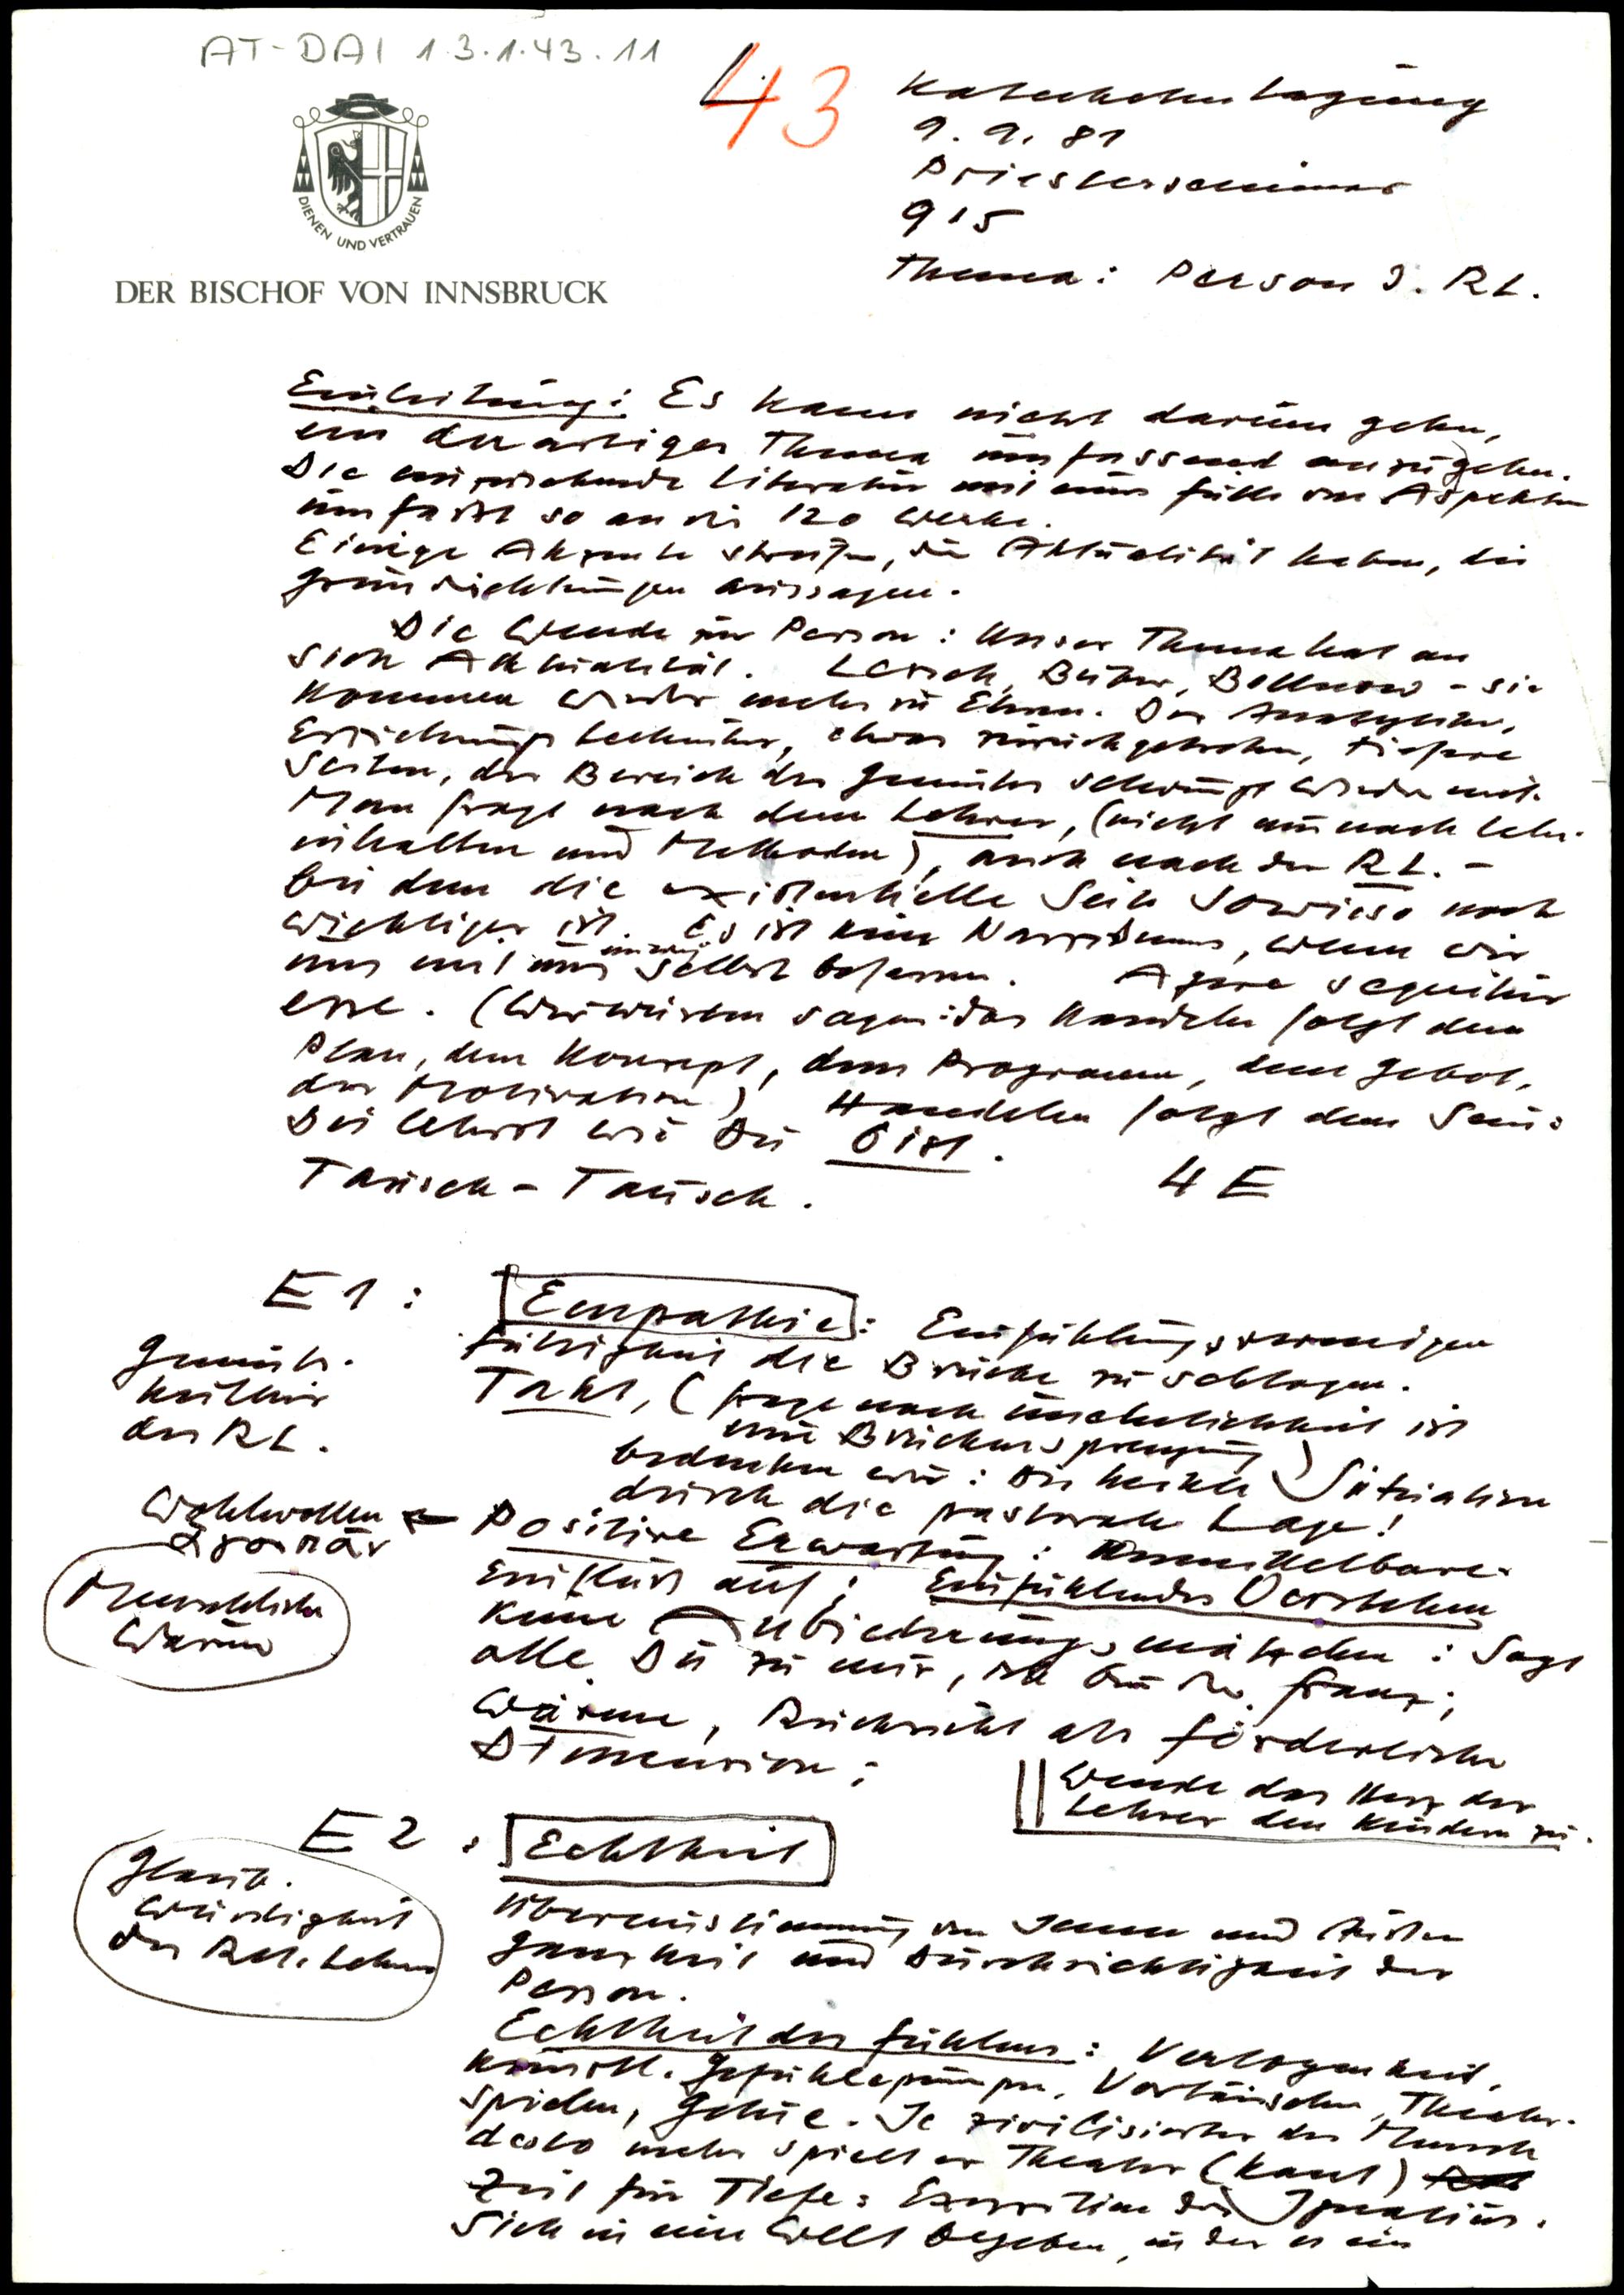 AT-DAI 1.3.1.43.11
43
Katechetentagung
9. 9. 81
Priesterseminar
9 15
Thema: Person d. RL.
DIENEN UND VERTRAUEN
DER BISCHOF VON INNSBRUCK
Einleitung: Es kann nicht darum gehn,
ein derartiges Thema umfassend anzugehen.
Die einschlägige Literatur mit einer Fülle von Aspekten
umfaßt so an die 120 Werke.
Einige Akzente streifen, die Aktualität haben, die
Grundrichtungen aussagen.
Die Wende zur Person: Unser Thema hat an
sich Aktualität. Lersch, Buber, Bollnow - sie
kommen wieder mehr zu Ehren. Der Analytiker,
Erziehungstechniker, etwas zurückgetreten, tiefere
Seiten, der Bereich des Gemütes schwingt wieder mit.
Man fragt nach dem Lehrer, (nicht nur nach Lehr-
inhalten und Methoden), auch nach dem RL. -
bei dem die existentielle Seite sowieso noch
wichtiger ist. Es ist kein Narzissmus, wenn wir
uns mit uns selbst befassen. Agere sequitur
esse. (Wir würden sagen: das Handeln folgt dem
Plan, dem Konzept, dem Programm, dem Gebot,
der Motivation) Handeln folgt dem Sein:
Du lehrst wie Du bist.
Tausch - Tausch. 4 E
E 1: Empathie: Einfühlungsvermögen
Gemüts-
kultur
des RL.
Fähigkeit die Brücke zu schlagen.
Takt, (Frage nach Unehelichkeit ist
eine Brückensprengung)
bedenken wir: Die heikle Situation
durch die pastorale Lage!
Wohlwollen
Menschliche
Wärme
Positive Erwartung: Unmittelbare
Einfluß auf: Einfühlendes Verstehen
Keine Anbiederungsmätzchen: Sagt
alle Du zu mir, ich bin der Franz;
Wärme, Rücksicht als förderliche
Dimension;
Wende das Herz der
Lehrer den Kindern zu.
E 2: Echtheit
Glaub-
würdigkeit
des Rel. Lehrers
Übereinstimmung von Innen und Außen
Ganzheit und Durchsichtigkeit der
Person.
Echtheit des Fühlens: Verlogenheit,
künstl. Gefühlspumpe, Vortäuschen, Theater-
spielen, Getue. Je zivilisierter der Mensch
desto mehr spielt er Theater (Kant)
Zeit für Tiefe: Exerzitien des Ignatius.
Sich in eine Welt begeben, in der er ein